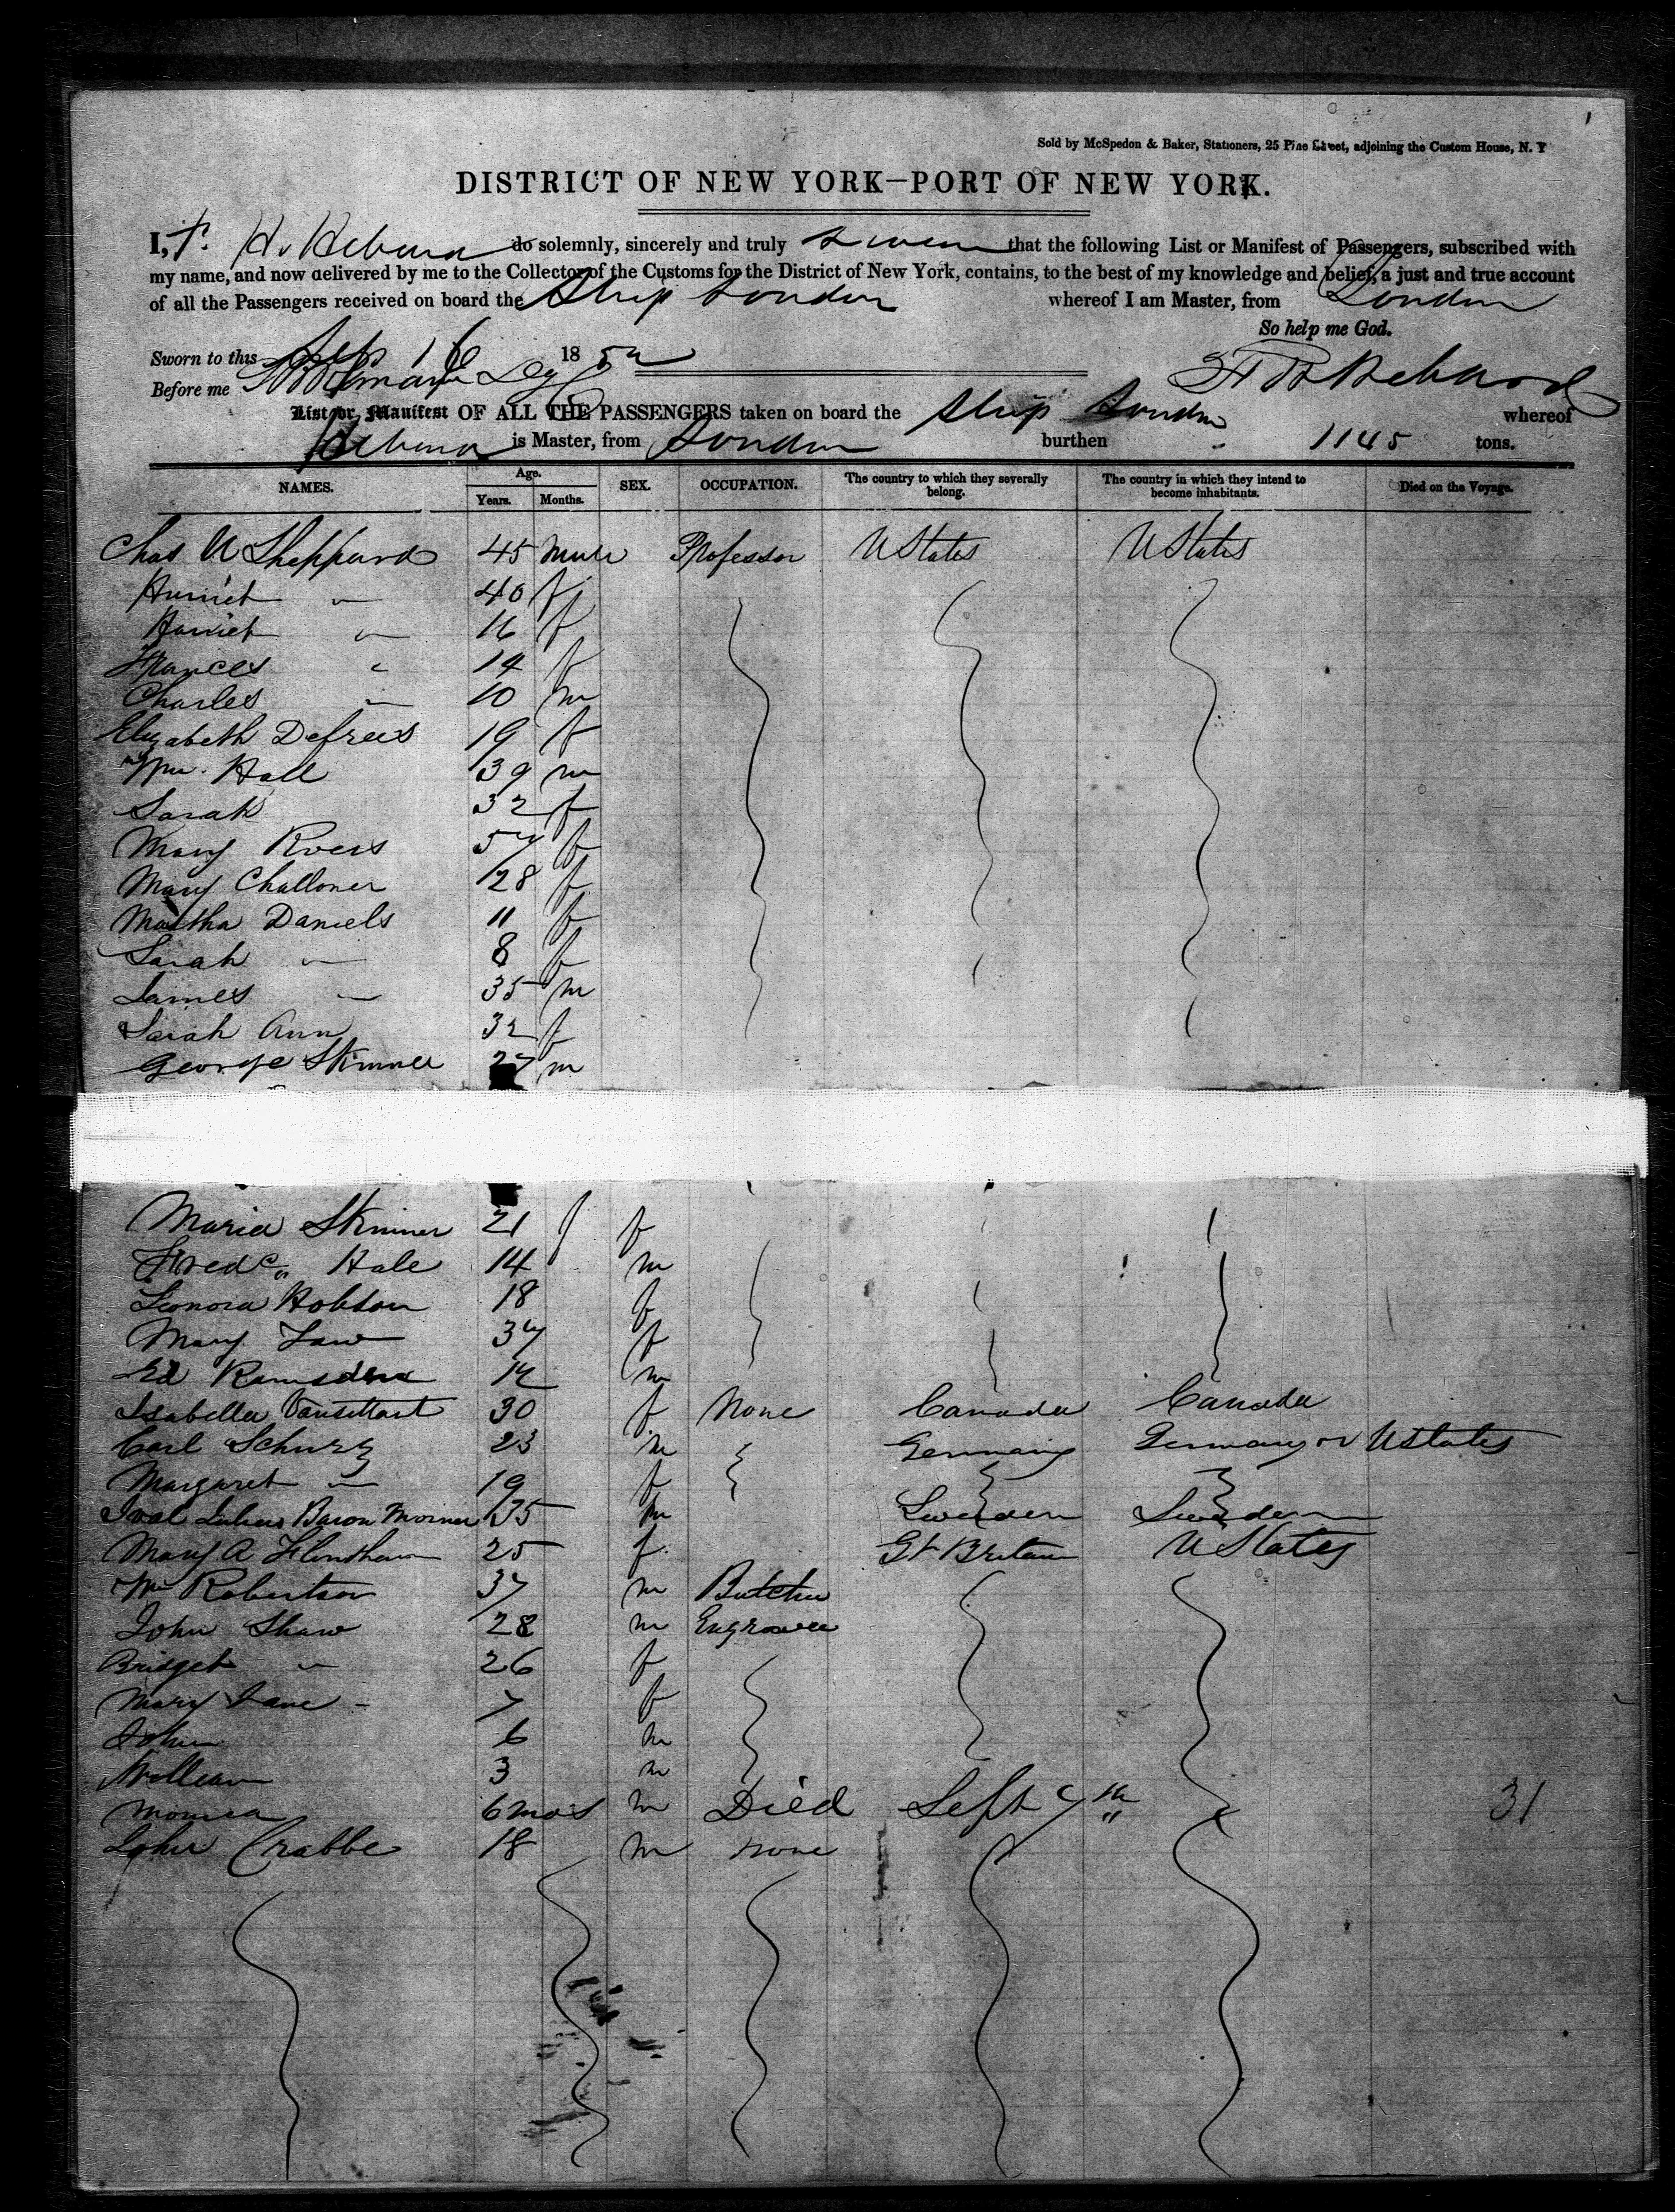 Sold by McSpedon & Baker, Stationers, 25 Pine Street, adjoining the Custom House, N. Y
DISTRICT OF NEW YORK—PORT OF NEW YORK.
I, F. H. Hebard do solemnly, sincerely and truly swear that the following List or Manifest of Passengers, subscribed with
my name, and now delivered by me to the Collector of the Customs for the District of New York, contains, to the best of my knowledge and belief, a just and true account
of all the Passengers received on board the Ship London whereof I am Master, from London
So help me God.
Sworn to this Sep 16 1852
Before me
F H Hebard
List or Manifest OF ALL THE PASSENGERS taken on board the Ship London whereof
Hebard is Master, from London burthen 1145 tons.
NAMES. Age. Years. Months. SEX. OCCUPATION. The country to which they severally belong. The country in which they intend to become inhabitants. Died on the Voyage.
Chas U Sheppard 45 male Professor U States U States
Harriet " 40 f
Harriet " 16 f
Frances " 14 f
Charles " 10 m
Elizabeth Defrees 19 f
Wm. Hall 39 m
Sarah 32 f
Mary 57 f
Mary Challoner 28 f
Martha Daniels 11 f
Sarah " 8 f
James " 35 m
Sarah Ann 32 f
George Skinner 27 m
Maria Skinner 21 f f
Fredc Hale 14 m
Leonora Hobson 18 f
Mary Law 37 f
Ed Ramsden 12 m
Isabella Vansittart 30 f None Canada Canada
Carl Schurz 23 m Germany Germany or U States
Margaret " 19 f
Julius Baron Morner 35 m Sweden Sweden
Mary A Flintham 25 f Gt Britain U States
Wm Robertson 37 m Butcher
John Shaw 28 m Engraver
Bridget " 26 f
Mary Jane " 7 f
John 6 m
William 3 m
6 mos m Died Sept 7th 31
John Crabbe 18 m none